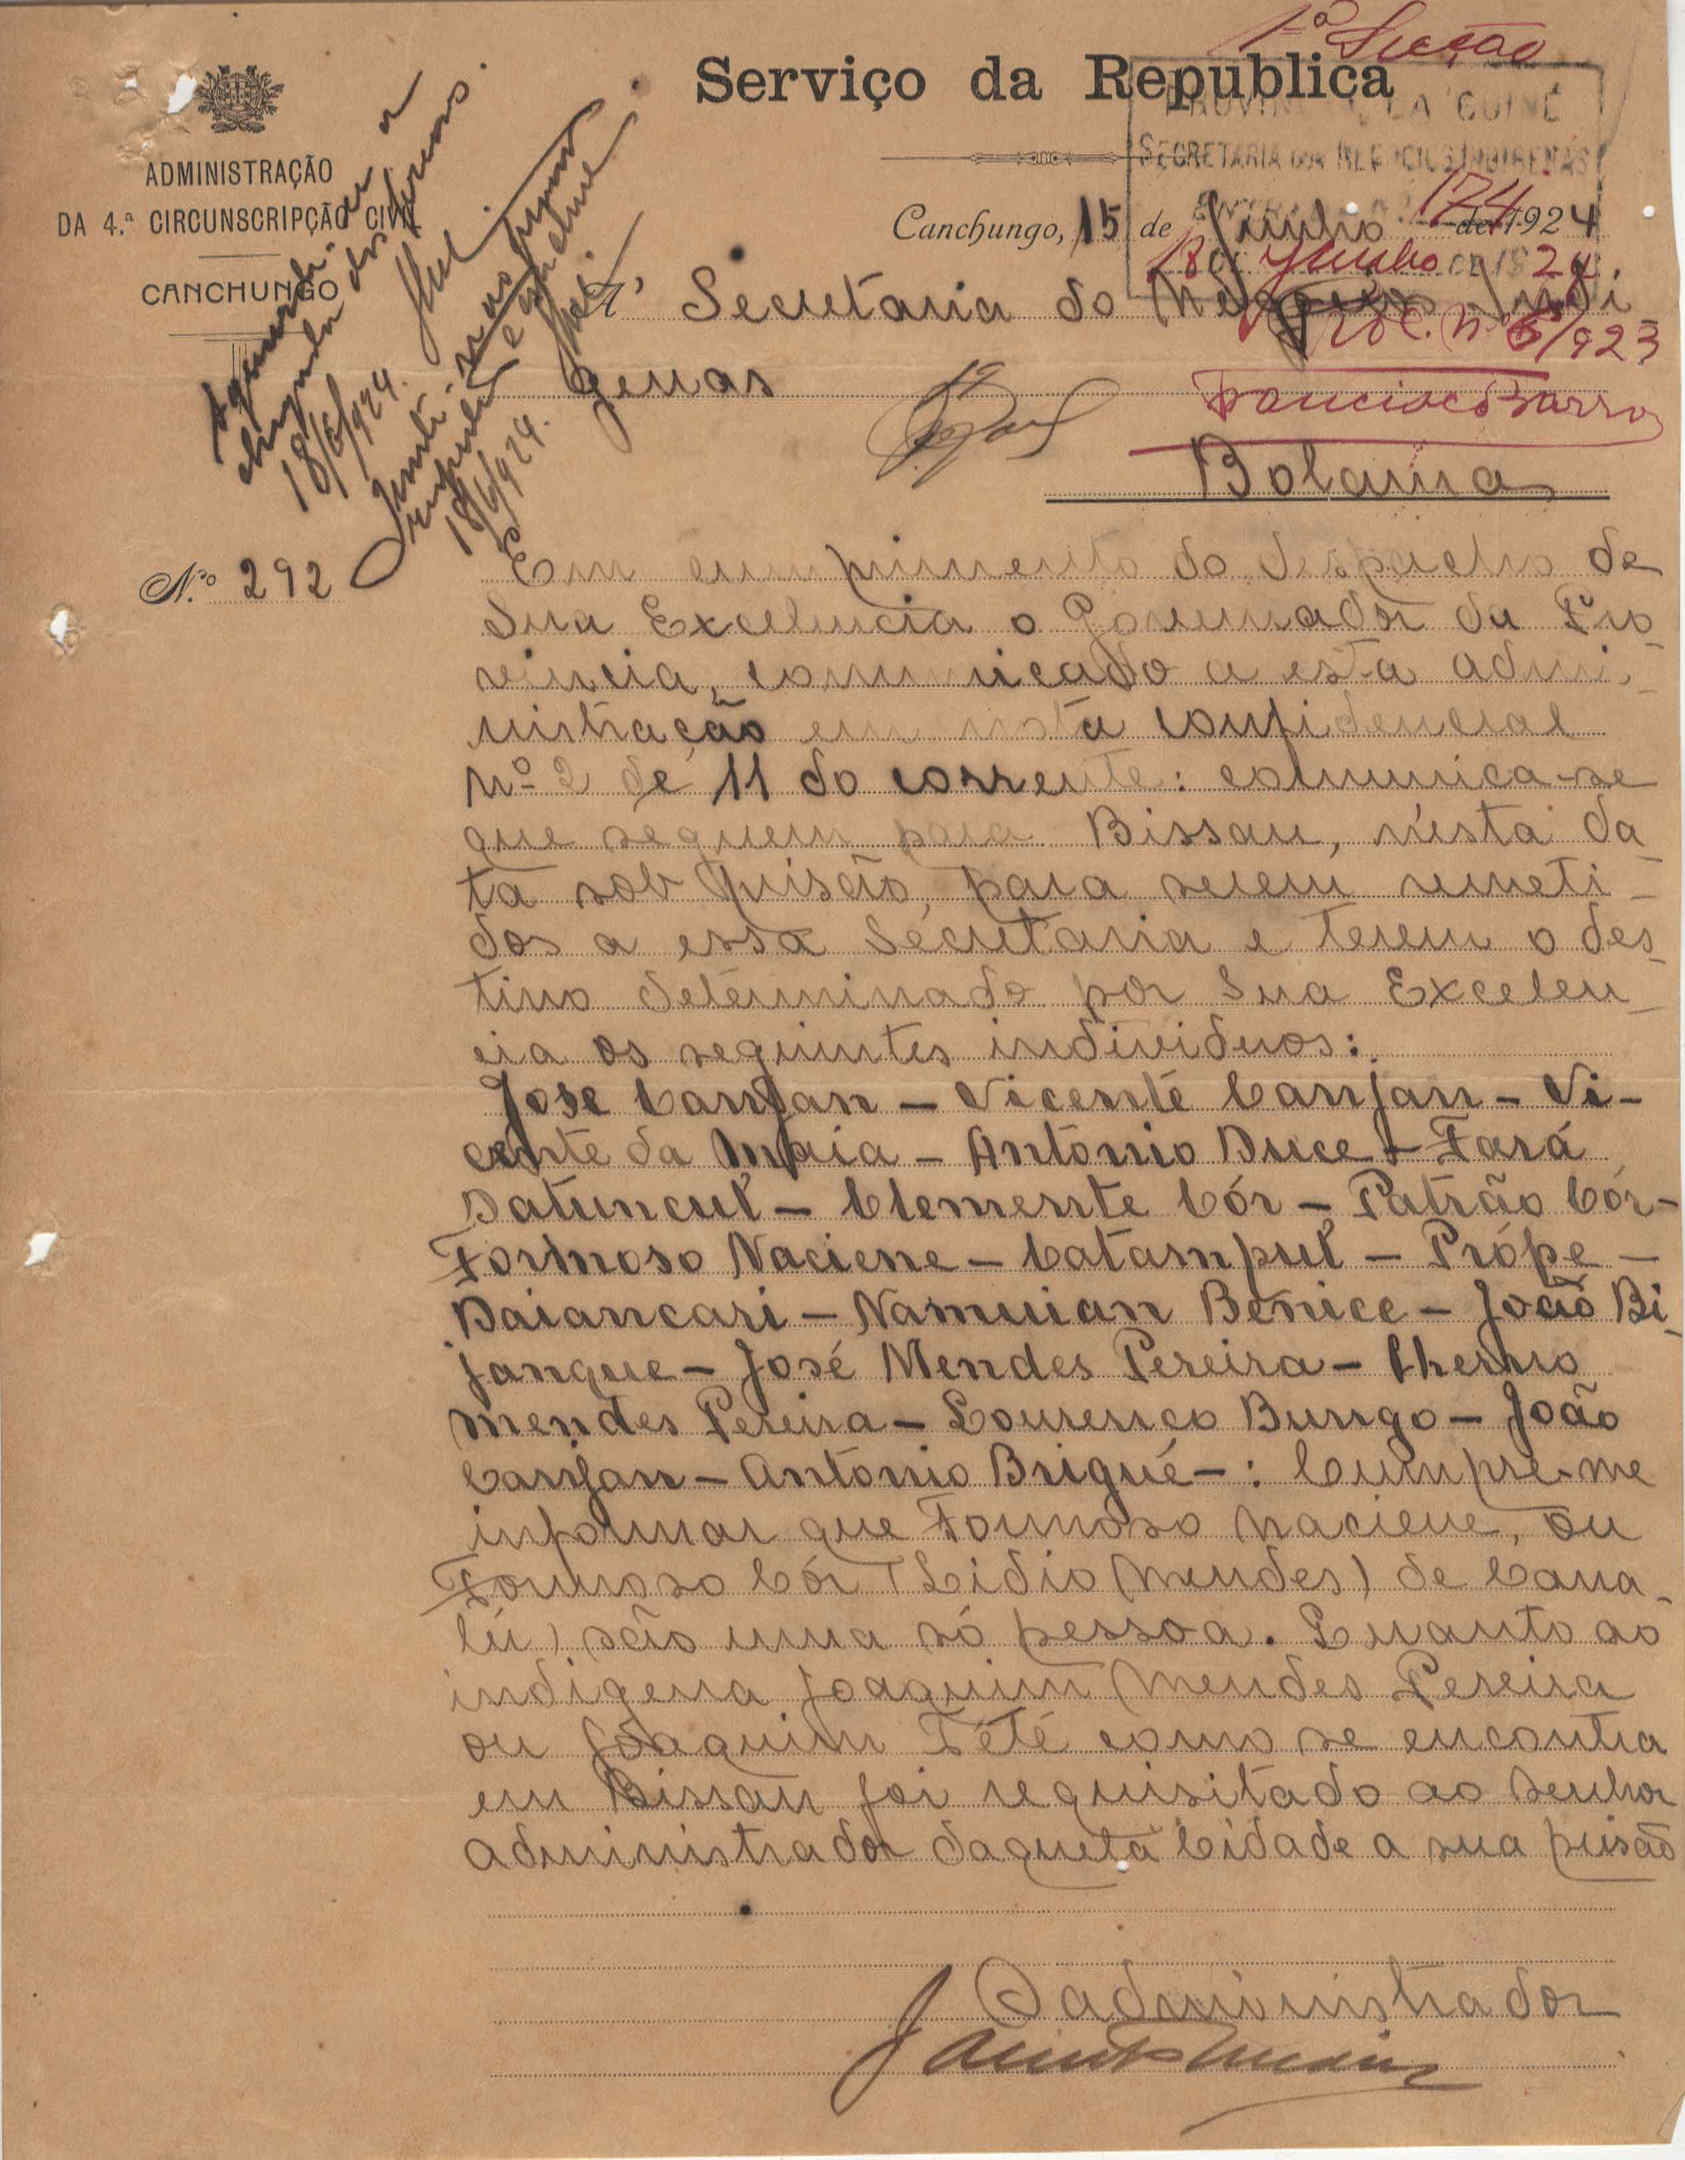 1ª Secção
Serviço da Republica
PROVINCIA DA GUINÉ
SECRETARIA DOS NEGOCIOS INDIGENAS
ADMINISTRAÇÃO
DA 4.ª CIRCUNSCRIPÇÃO CIVIL
CANCHUNGO
174
Canchungo, 15 de Junho de 1924
18 de Junho de 1924
Á Secretaria do Negocios Indi-
genas
Proc. nº 5/923
Francisco Barros
Bolama
Aguarde-se a
chegada dos presos.
18/6/924.
Junte-se ao
18/6/924.
N.º 292
Em cumprimento do despacho de
Sua Excelencia o Governador da Pro
vincia, comunicado a esta admi-
nistração em nota confidencial
nº 2 de 11 do corrente: comunica-se
que seguem para Bissau, n'esta da
ta sob prisão, para serem remeti-
dos a essa Secretaria e terem o des-
tino determinado por Sua Excelen-
cia os seguintes individuos:
José Canjan - Vicente Canjan - Vi-
cente da Maia - António Duce - Fará
Datuncul - Clemente Cór - Patrão Cór -
Formoso Naciene - Catampul - Própe -
Daiancari - Namuian Benice - João Bi-
janque - José Mendes Pereira - Cherno
Mendes Pereira - Lourenço Bungo - João
Canjan - António Brigué - : Cumpre-me
informar que Formoso Naciene, ou
Formoso Cór (Lidio Mendes) de Cana-
lú) são uma só pessoa. Quanto ao
indigena Joaquim Mendes Pereira
ou Joaquim Tété como se encontra
em Bissau foi requisitado ao Senhor
administrador daquela Cidade a sua prisão
O administrador